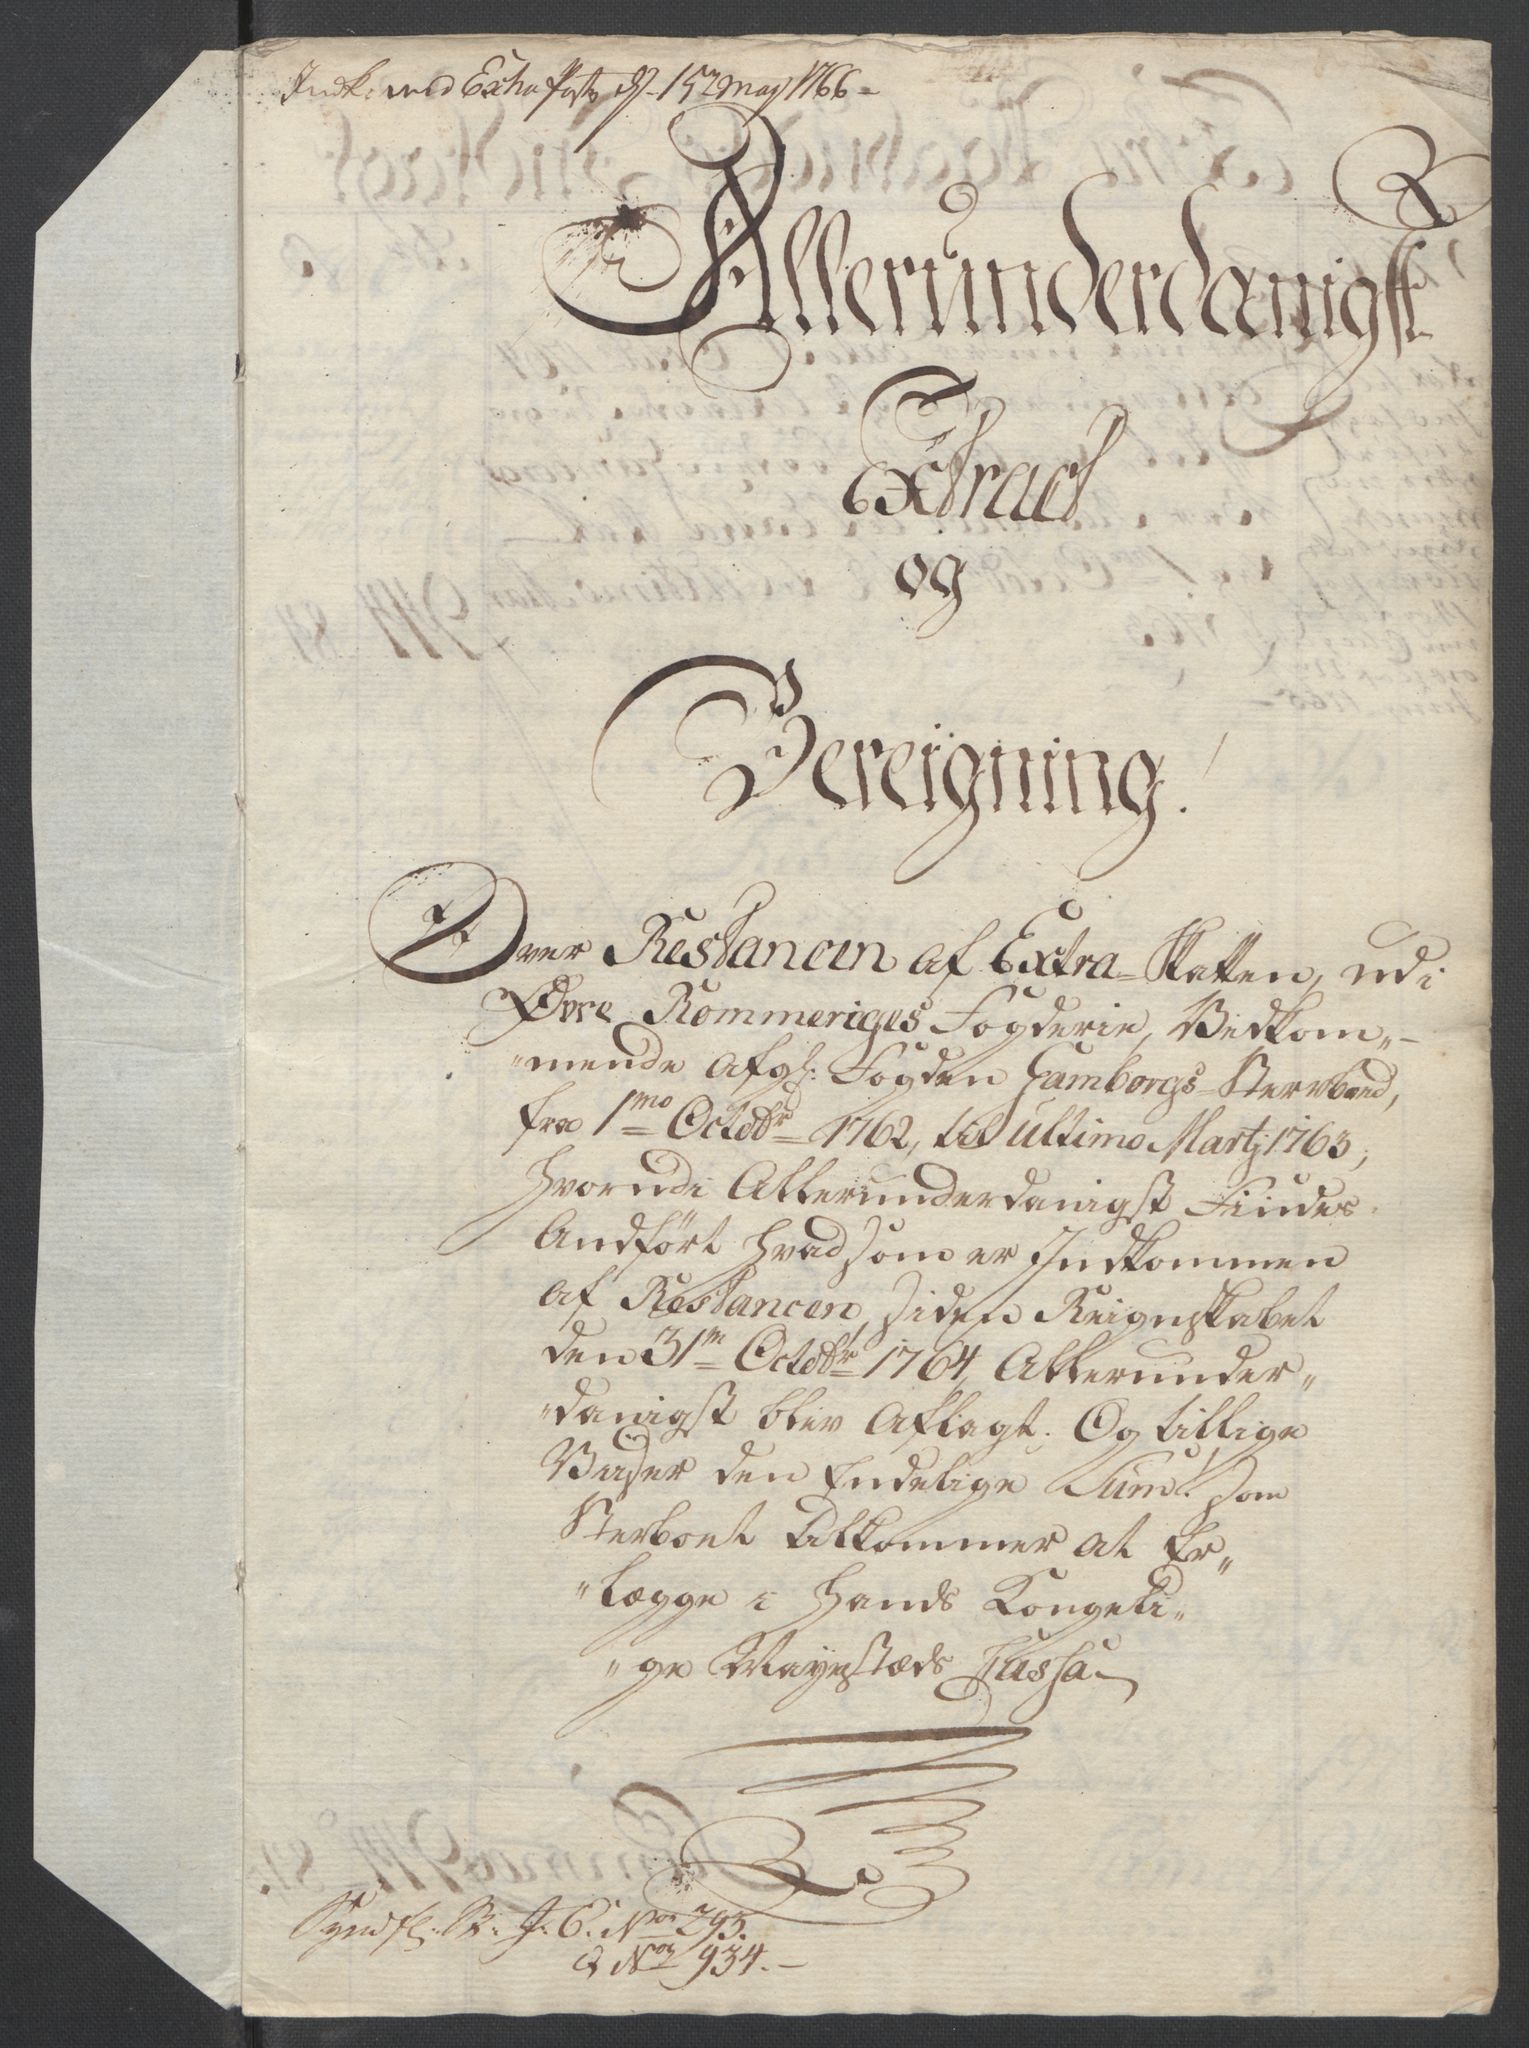 Indk: med Extra Post d. 15de May 1766 –
Allerunderdanigst
Extract
og
Bereigning!
Over Restancen af Extra-Skatten, udi
Øvre Rommeriges Fogderie, Vedkom„-
„mende afg: Fogden Gamborgs Sterrboed,
fra 1mo Octobr 1762, til ultimo Martj 1763,
hvorudi Allerunderdanigst Findes
Andført hvad som er Indkommen
af Restancen, siden Reignskabet
den 31m Octobr 1764, Allerunder„
„danigst blev Aflagt. Og tillige
Viser den Endelige Sum som
Sterboet tilkommer at Er„
„lægge i hands Kongeli„
„ge Mayestæds Cassa
No 295.
No 934. –